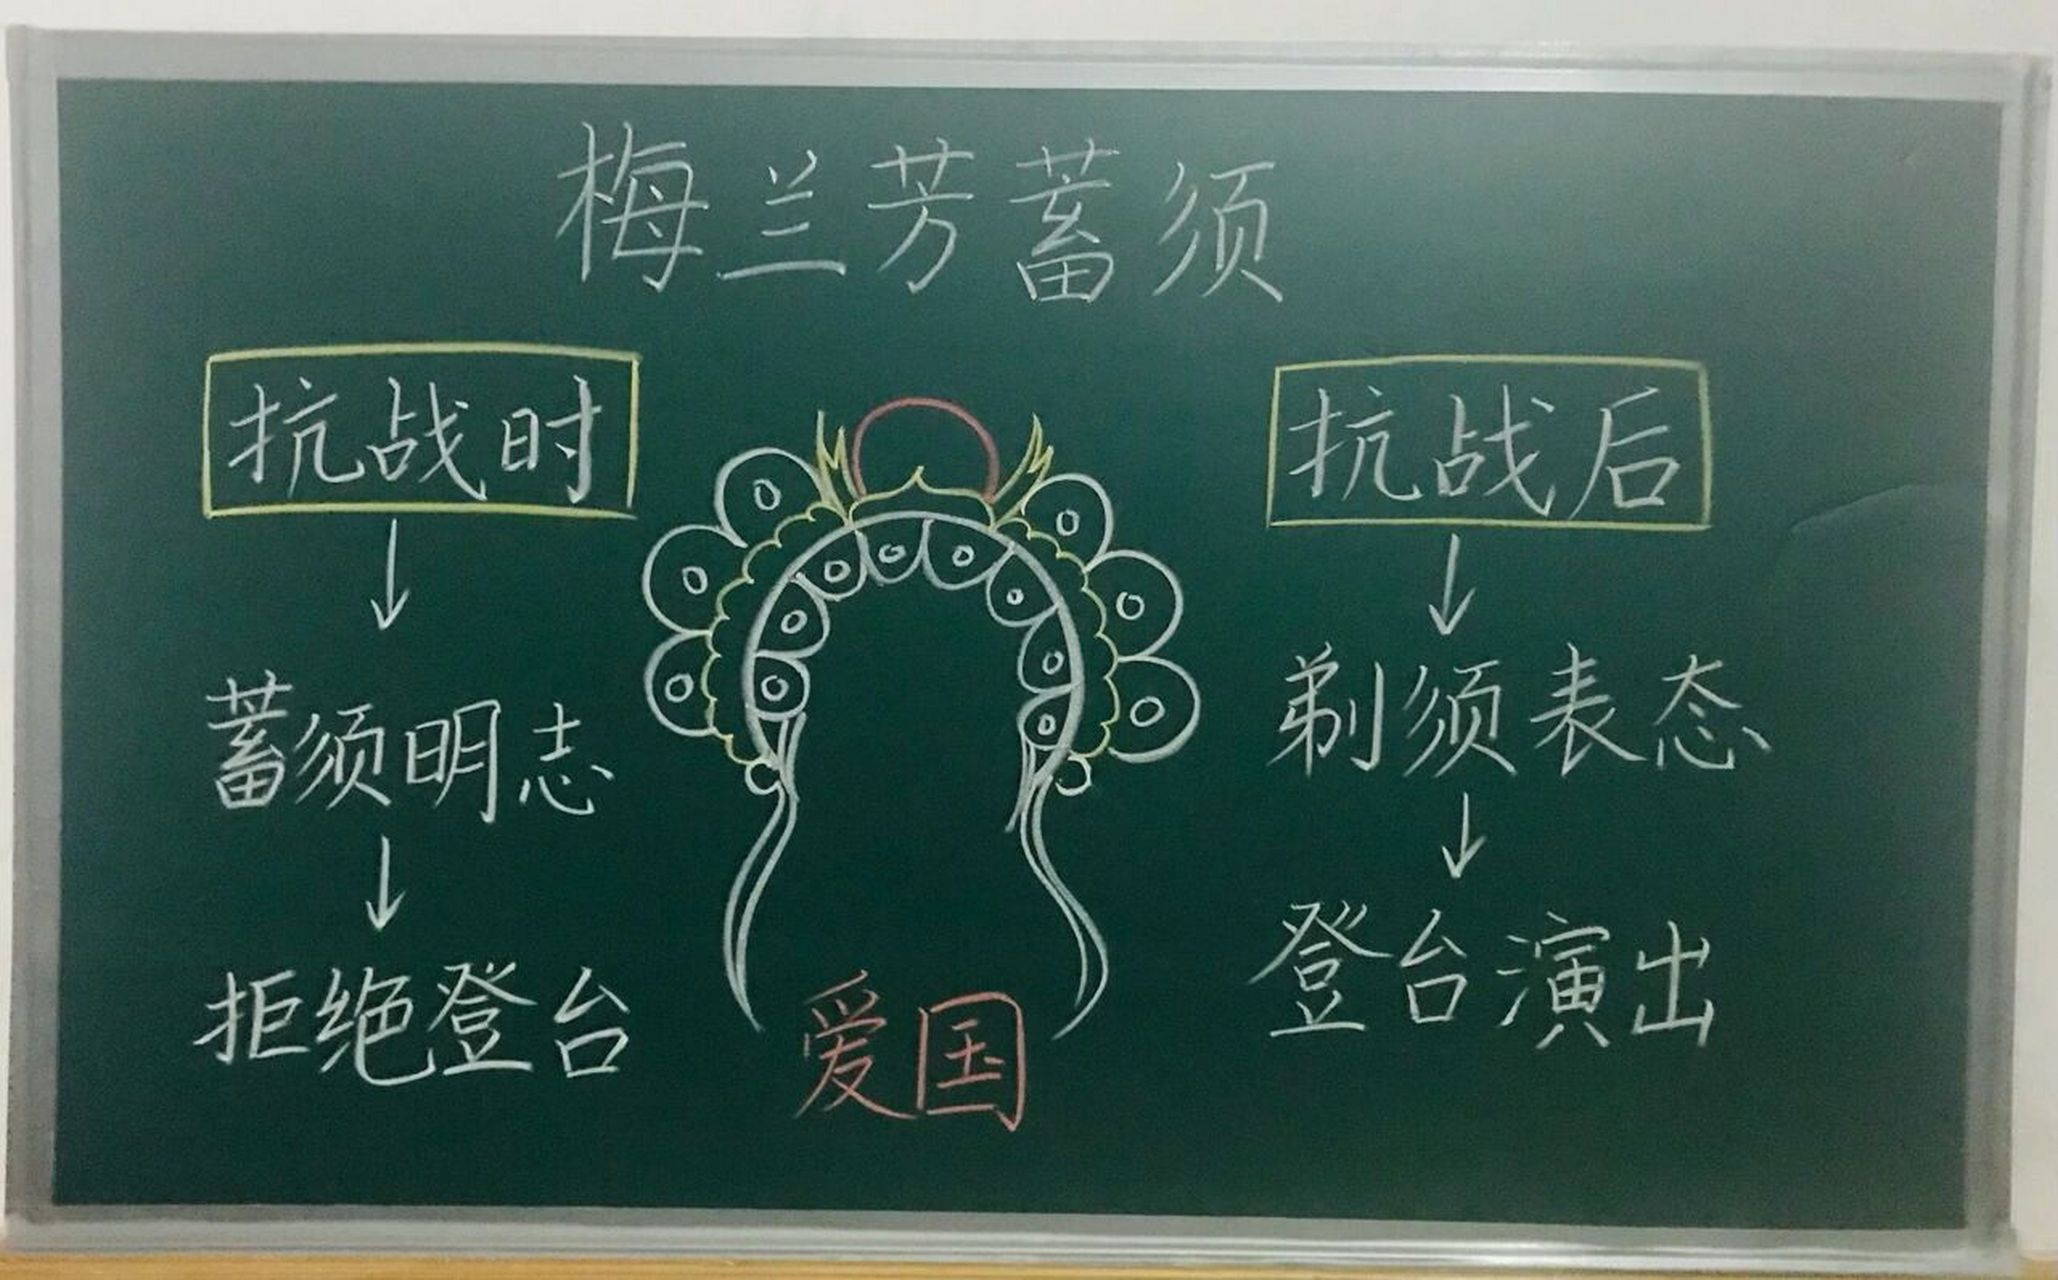 梅兰芳蓄须
抗战时
蓄须明志
拒绝登台
爱国
抗战后
剃须表态
登台演出